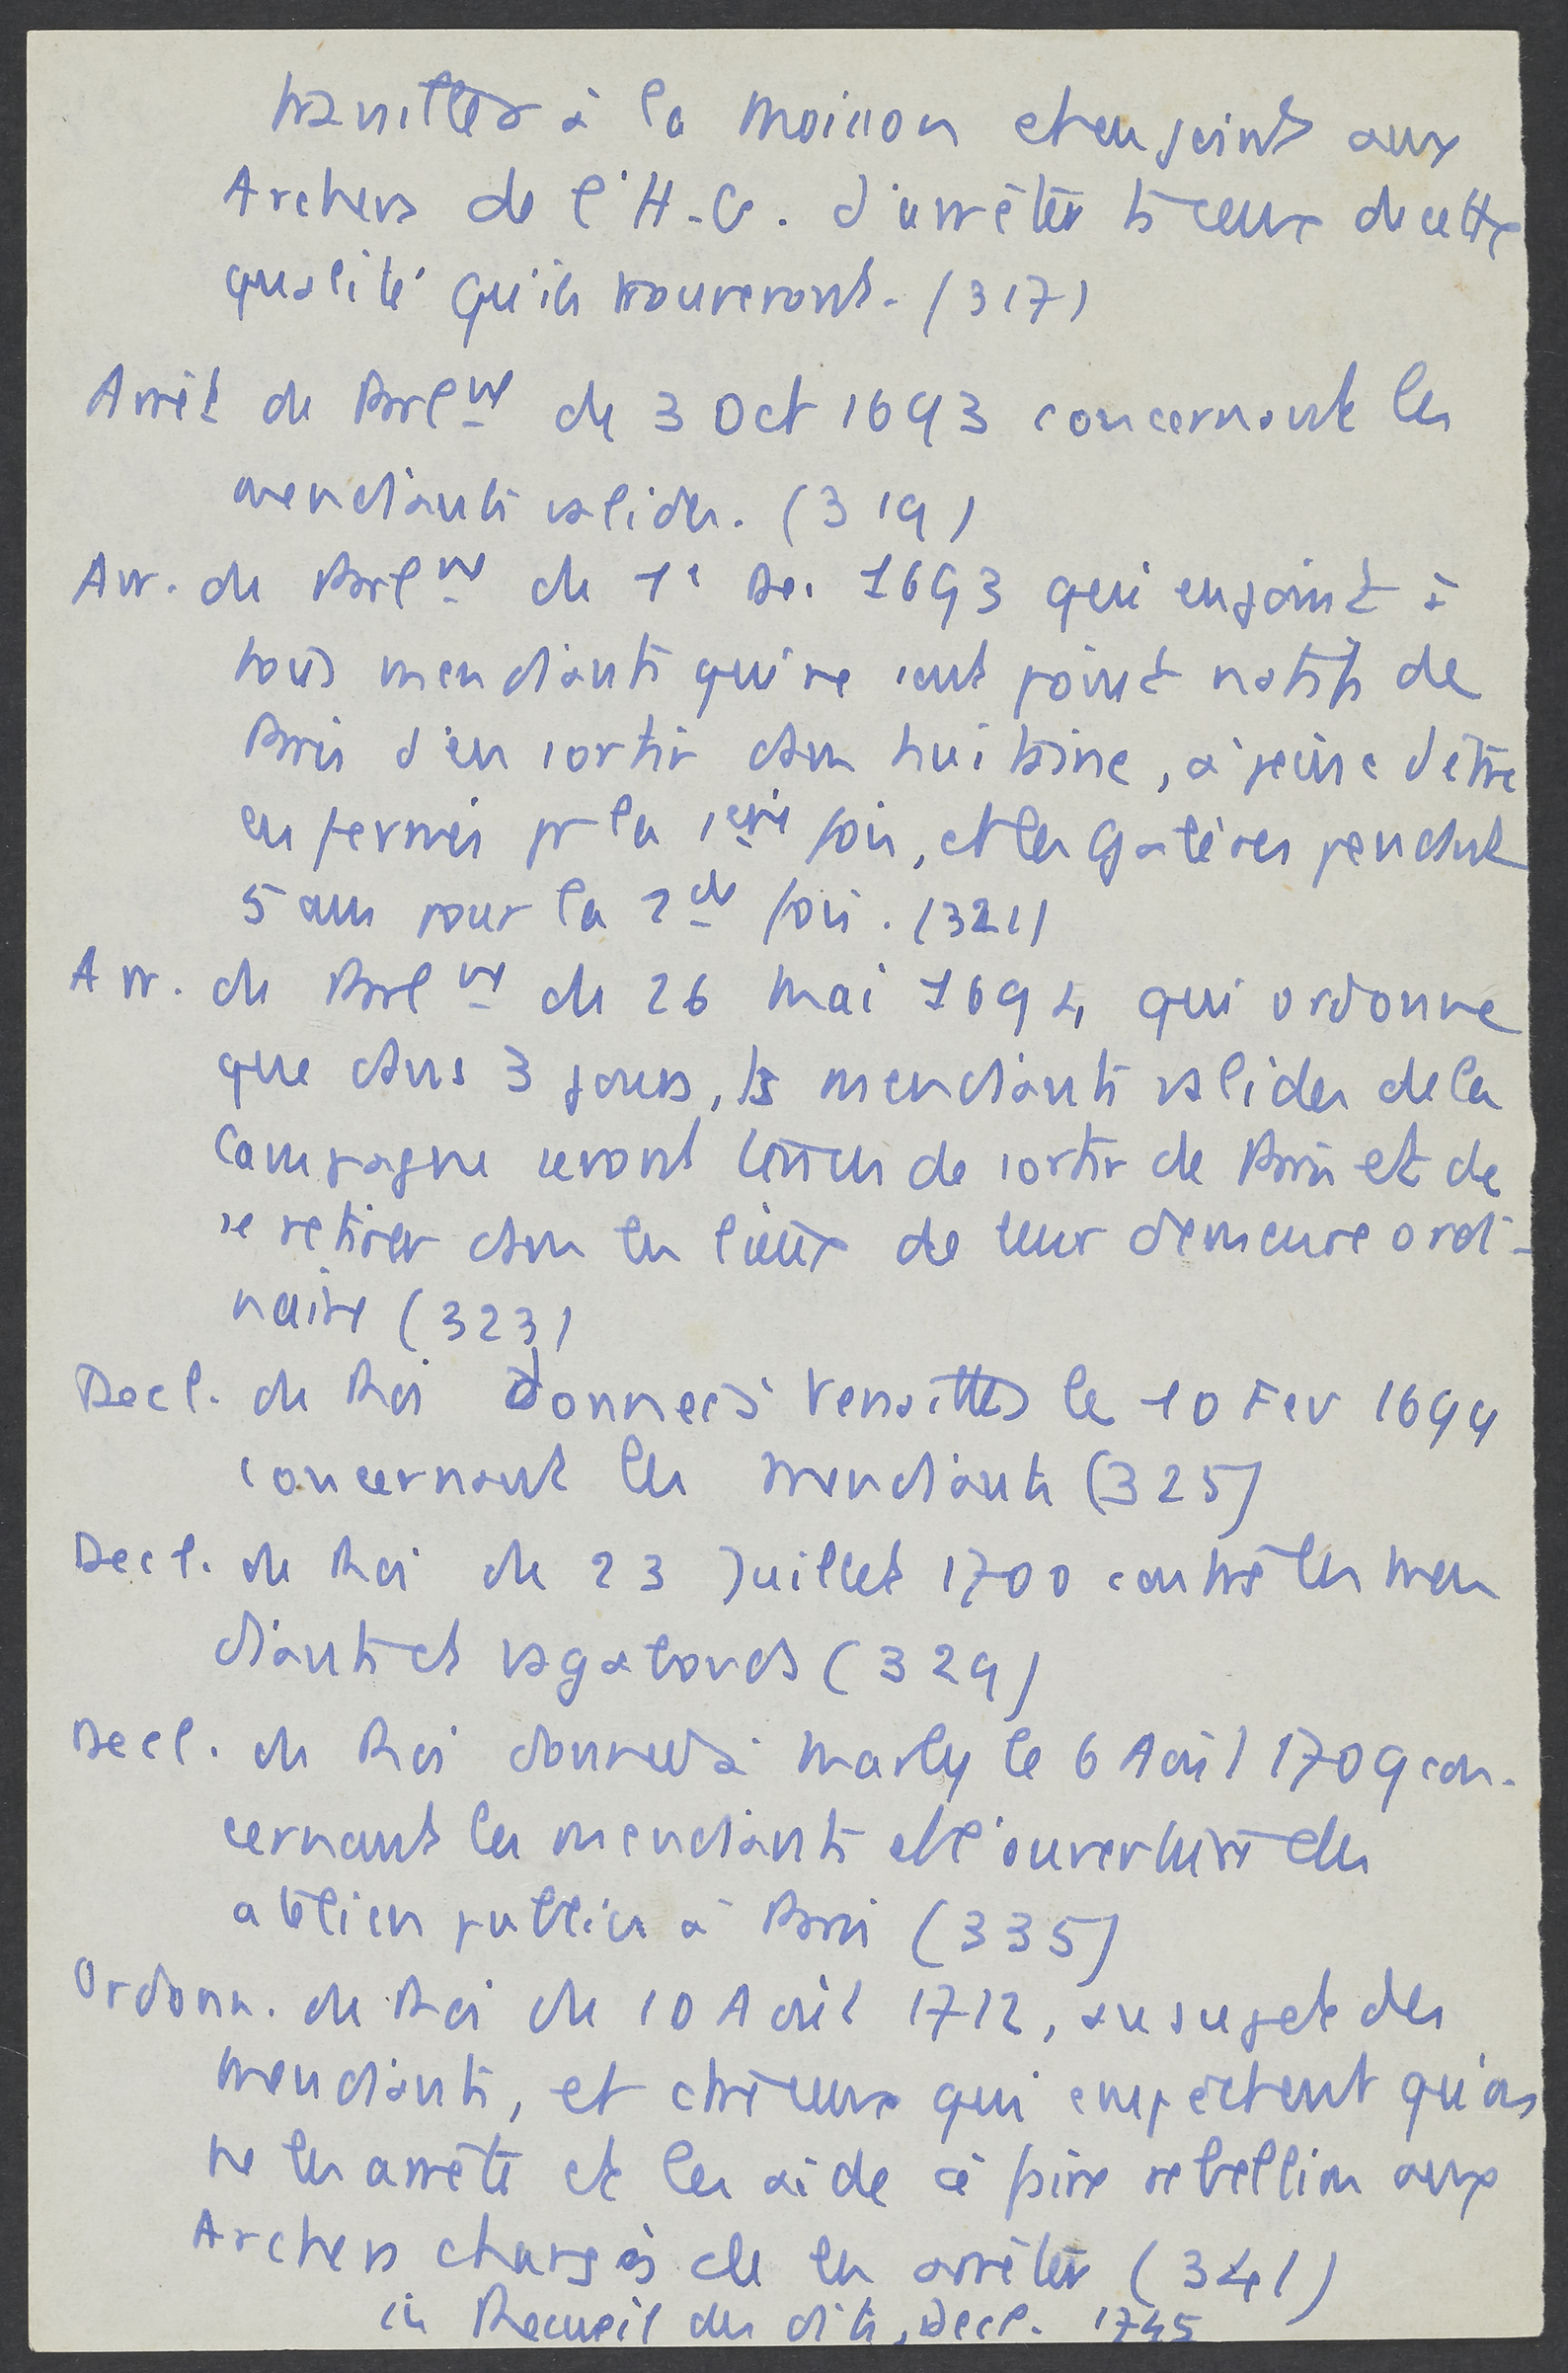 travailler à la moisson et enjoint aux
Archers de l'H.G. d'arrêter ts ceux de cette
qualité qu'ils trouveront. (317)
Arrêt du Parlnt du 3 Oct 1693 concernant les
mendiants valides. (319)
Arr. du Parlnt du 1e De. 1693 qui enjoint à
tous mendiants qui ne sont point natifs de
Paris d'en sortir dans huitaine, à peine d'être
enfermés pr la 1ere fois, et les galères pendant
5 ans pour la 2de fois. (321)
Arr. du Parlnt du 26 Mai 1694 qui ordonne
que dans 3 jours, ts mendiants valides de la
campagne seront tenus de sortir de Paris et de
se retirer dans les lieux de leur demeure ordi-
naire (323)
Decl. du Roi donnée à Versailles le 10 Fev 1699
concernant les mendiants (325)
Decl. du Roi du 23 Juillet 1700 contre les men
diants et vagabonds (329)
Decl. du Roi donnée à Marly le 6 Aoû 1709 con-
cernant les mendiants et l'ouverture des
ateliers publics à Paris (335)
Ordonn. du Roi du 10 Avril 1712, au sujet des
mendiants, et de ceux qui empêchent qu'on
ne les arrête et les aide à faire rebellion aux
Archers chargés de les arrêter (341)
in Recueil des dits, Decl. 1745